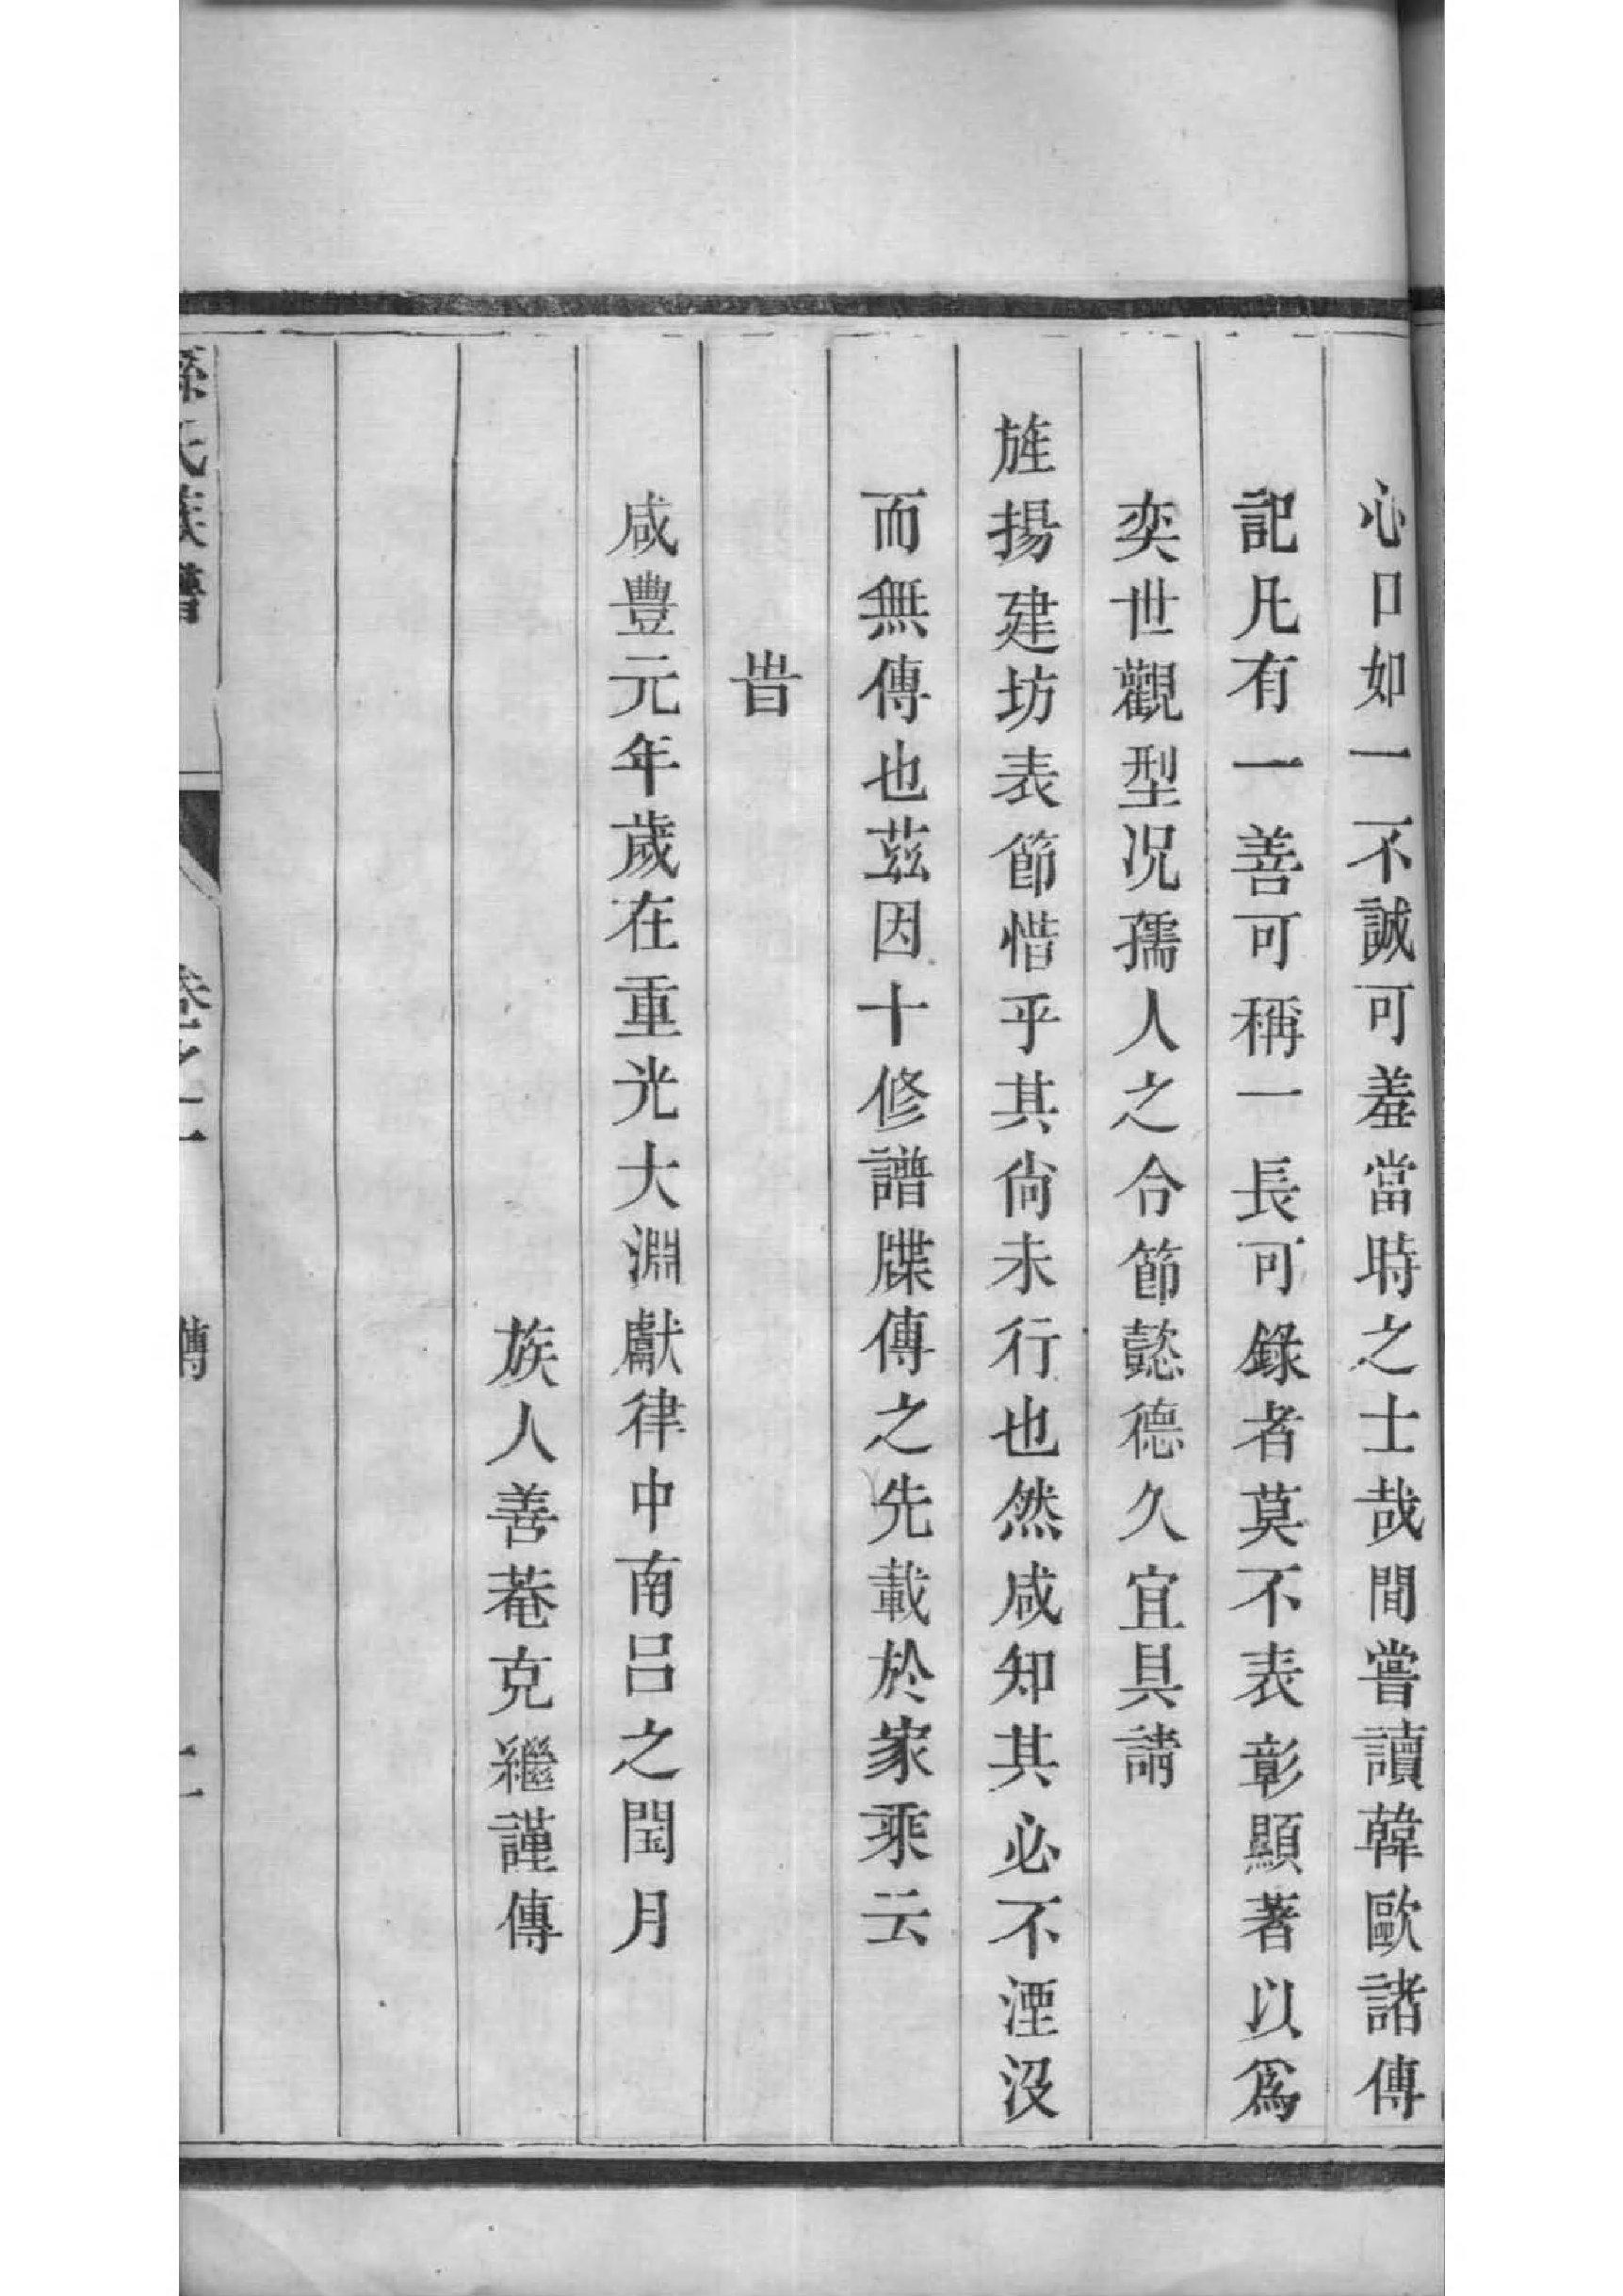 心口如一不誠可羞當時之士哉間嘗讀韓歐諸傳
記凡有一善可稱一長可錄者莫不表彰顯著以爲
奕世觀型况孺人之合節懿德久宜具請
旌揚建坊表節惜乎其尙未行也然咸知其必不湮沒
而無傳也茲因十修譜牒傳之先載於家乘云
旹
咸豐元年歲在重光大淵獻律中南呂之閏月
族人善菴克繼謹傳
孫氏族譜 卷之二 傳 二